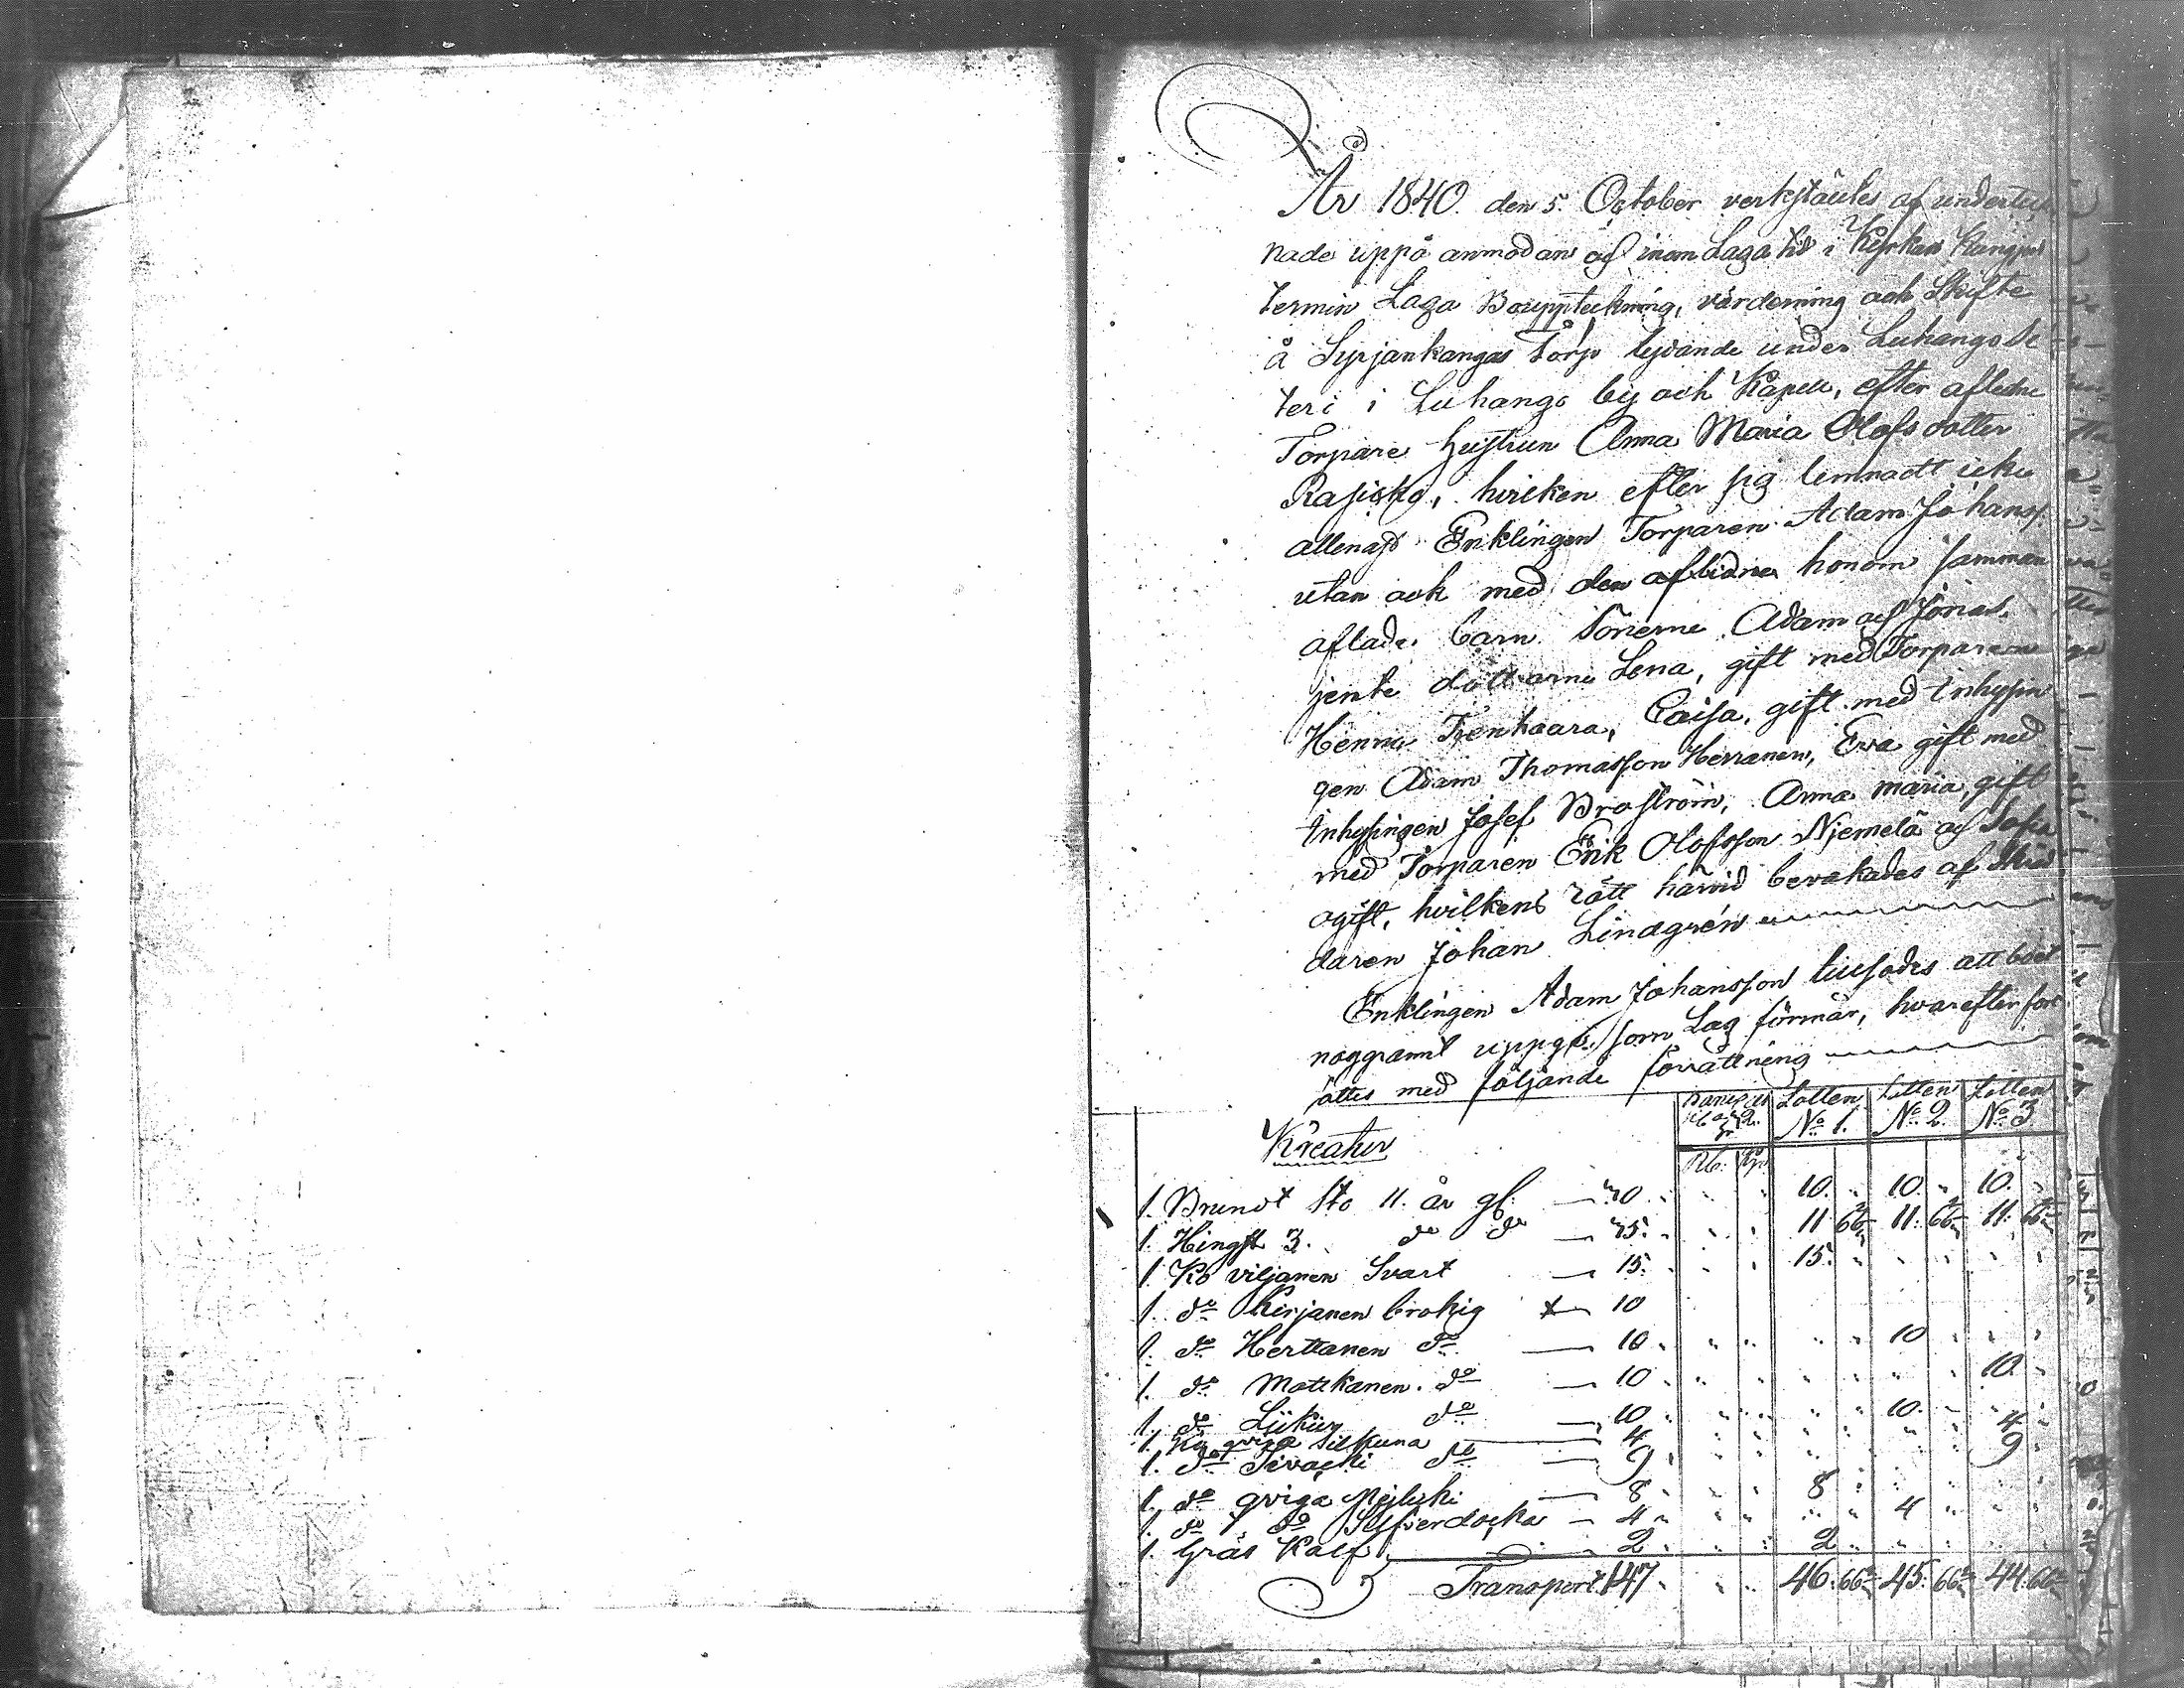 År 1840. den 5. October verkställes af underteck
nade uppå anmodan och inom Laga tid i Kyrkan
termin Laga Bouppteckning, värdering och Skifte
å Syrjänkangas Torp lydande under Luhango Sä
teri i Luhango by och Kapell, efter aflidne
Torpare hustrun Anna Maria Olofsdotter
hvilken efter sig lemnadt icke
allenast Enklingen Torparen Adam Johansson
utan ock med den aflidne honom samman
aflade barn Sönerne Adam och Jonas,
jemte döttrarne Lena, gift med Torparen
Henric Caisa, gift med Inhysin
gen Adam Thomasson Herranen, Eva gift med
Inhysingen Josef Broström, Anna Maria, gift
med Torparen Erik Olofsson Njemelä och Sofia
ogift, hvilkens rätt härvid bevakades af Skräd
daren Johan Lindgrén
Enklingen Adam Johansson tillsades att boet
noggrannt uppge, som Lag förmår, hvarefter fort
sattes med följande förrättning
Lotten Lotten Lotten
No 1. No 2. No 3.
Kreatur Rb: Kp.
1. Brunt Sto 11. år gl. 30 10. 10. 10.
1. Hingst 3. do do 35. 11 66 2/3 11. 66 2/3 11. 66 2/3
1. Ko viljanen Svart 15. 15.
1. do Kirjanen brokig 10
1. do Herttanen do 10 10
1. do Mattkanen do 10 10.
1. do do 10 10.
1. qviga Silkuna 4 4
1. do do 9 9
1. do qviga 8 8
1. do do 4 4
1. Gräs Kalf 2 2
Transport 147 46. 66 2/3 45. 66 2/3 44. 66 2/3